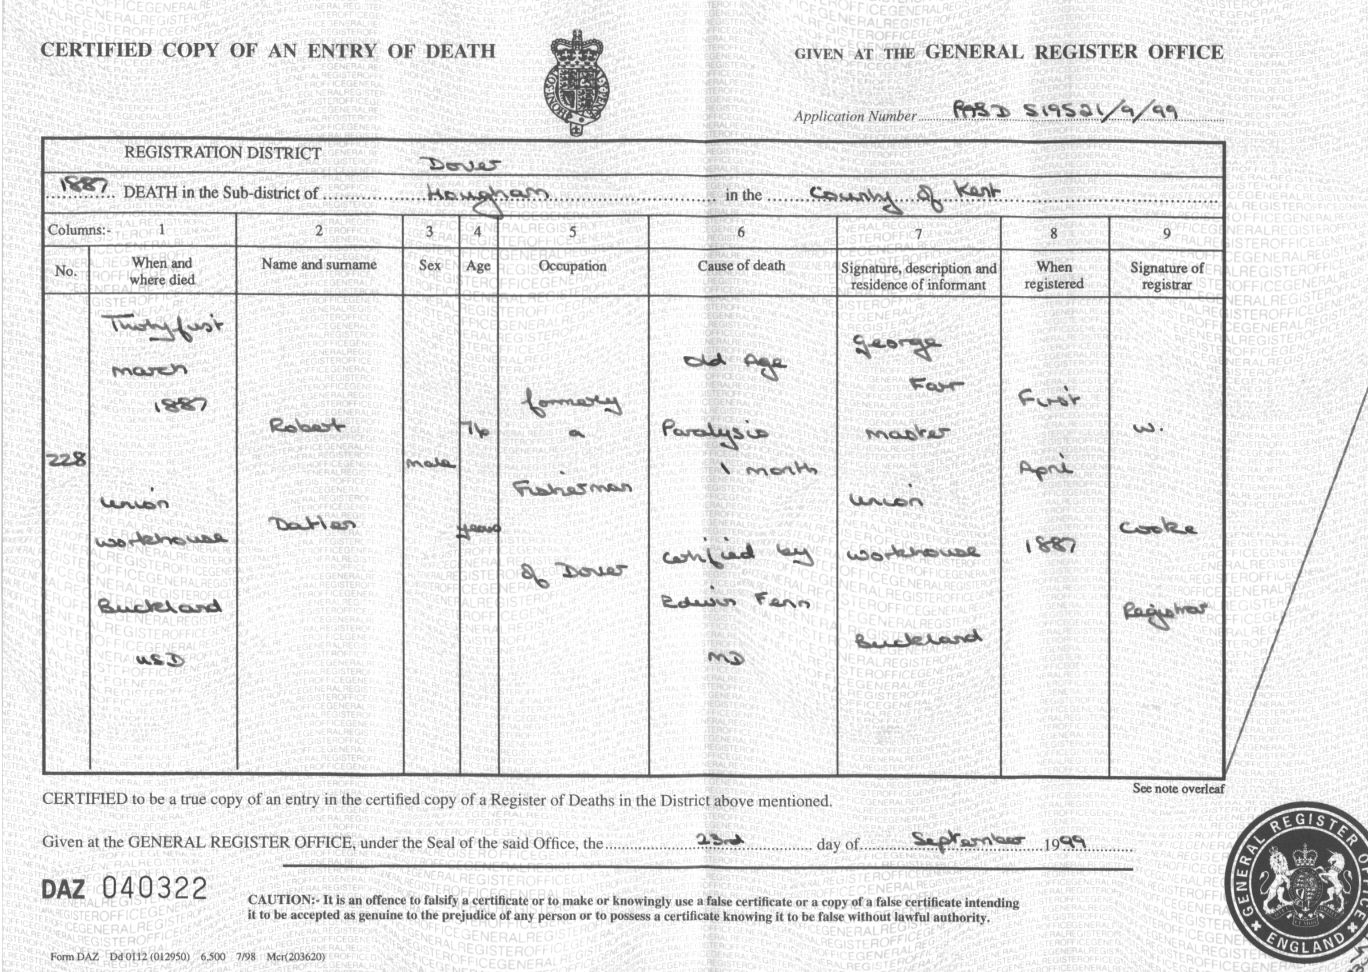 CERTIFIED COPY OF AN ENTRY OF DEATH
GIVEN AT THE GENERAL REGISTER OFFICE
Application Number PAS D S19521/9/99
REGISTRATION DISTRICT Dover
1887 DEATH in the Sub-district of Hougham in the County of Kent
Columns:- 1 2 3 4 5 6 7 8 9
No.
When and
where died
Name and surname
Sex
Age
Occupation
Cause of death
Signature, description and
residence of informant
When
registered
Signature of
registrar
228
Thirty first
march
1887
union
workhouse
Buckland
USD
Robert
Datlen
male
76
years
formerly
a
Fisherman
of Dover
Old Age
Paralysis
1 month
certified by
Edwin Fenn
MD
George
Farr
master
union
workhouse
Buckland
First
April
1887
W.
Cooke
Registrar
See note overleaf
CERTIFIED to be a true copy of an entry in the certified copy of a Register of Deaths in the District above mentioned.
Given at the GENERAL REGISTER OFFICE, under the Seal of the said Office, the 23rd day of September 1999
DAZ 040322
CAUTION:- It is an offence to falsify a certificate or to make or knowingly use a false certificate or a copy of a false certificate intending
it to be accepted as genuine to the prejudice of any person or to possess a certificate knowing it to be false without lawful authority.
Form DAZ Dd 0112 (012950) 6,500 7/98 Mcr(203620)
GENERAL REGISTER OFFICE
ENGLAND